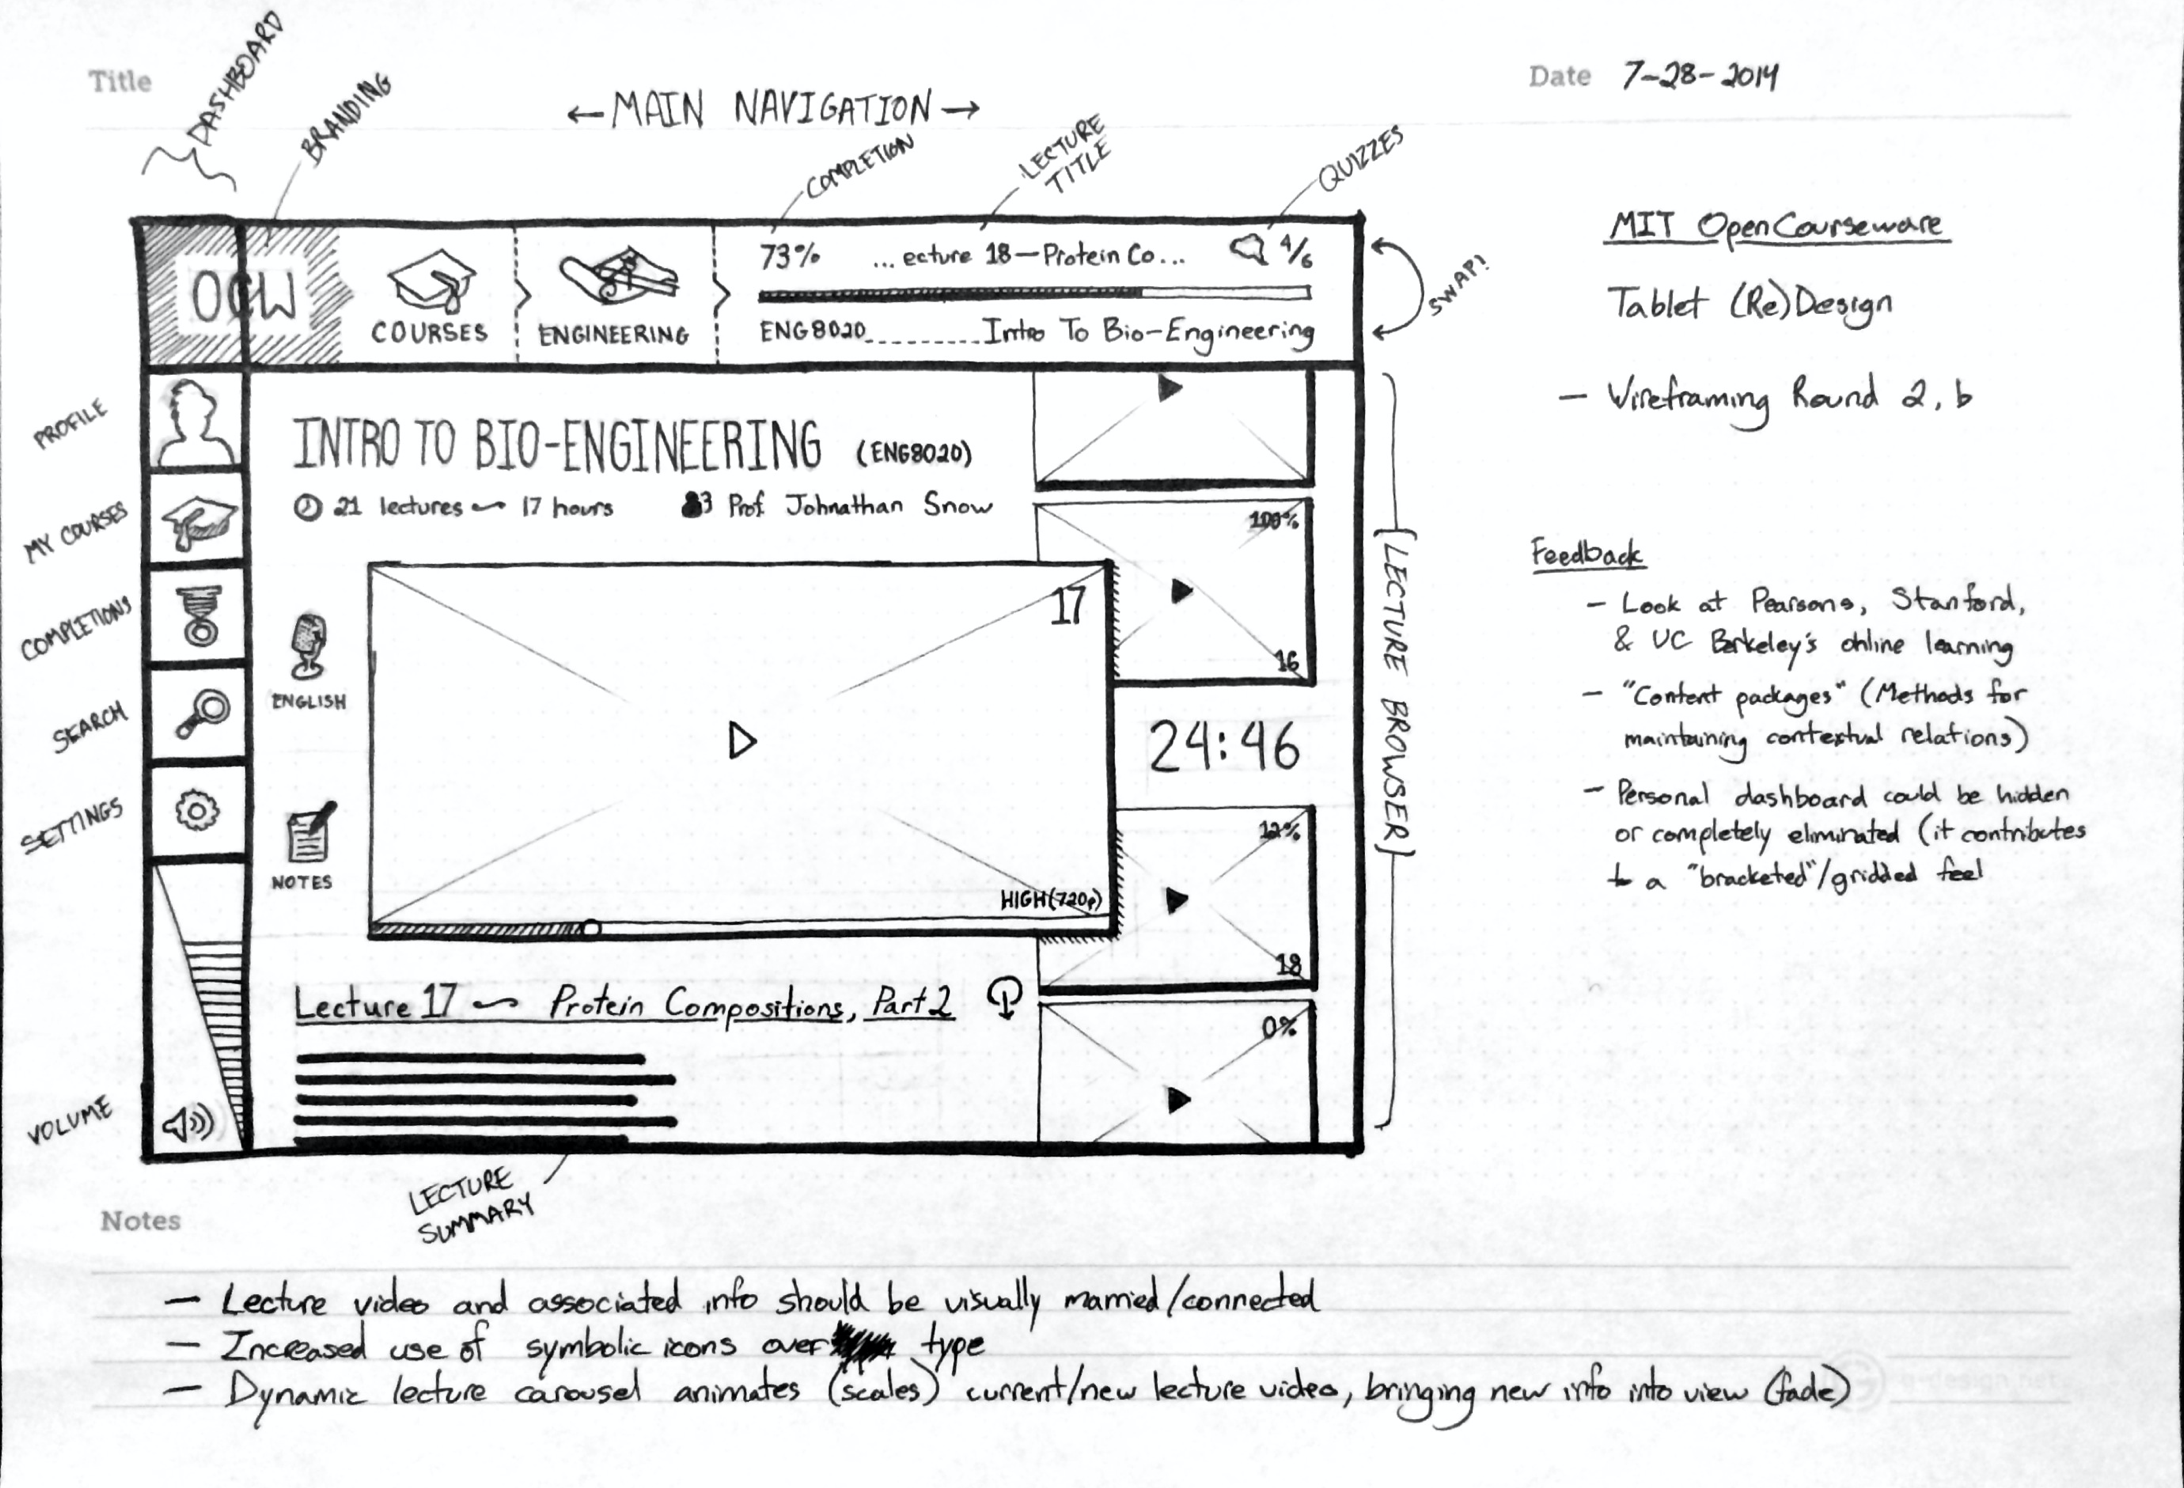 Title
Date 7-28-2014
DASHBOARD
BRANDING
←MAIN NAVIGATION→
COMPLETION
LECTURE
TITLE
QUIZZES
OCW
COURSES
ENGINEERING
73% ...ecture 18—Protein Co... 4/6
ENG8020.........Intro To Bio-Engineering
SWAP!
MIT OpenCourseware
Tablet (Re)Design
— Wireframing Round 2, b
PROFILE
MY COURSES
COMPLETIONS
SEARCH
SETTINGS
VOLUME
INTRO TO BIO-ENGINEERING (ENG8020)
21 lectures — 17 hours
Prof. Johnathan Snow
ENGLISH
NOTES
17
HIGH(720p)
100%
16
24:46
12%
18
0%
[LECTURE BROWSER]
Lecture 17 — Protein Compositions, Part 2
LECTURE
SUMMARY
Feedback
— Look at Pearsons, Stanford,
& UC Berkeley's online learning
— "Content packages" (Methods for
maintaining contextual relations)
— Personal dashboard could be hidden
or completely eliminated (it contributes
to a "bracketed"/gridded feel
Notes
— Lecture video and associated info should be visually married/connected
— Increased use of symbolic icons over type
— Dynamic lecture carousel animates (scales) current/new lecture video, bringing new info into view (fade)